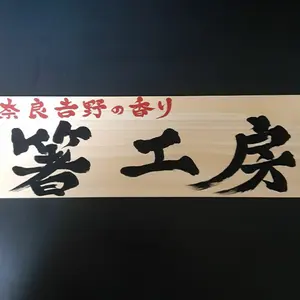 奈良吉野の香り
箸工房